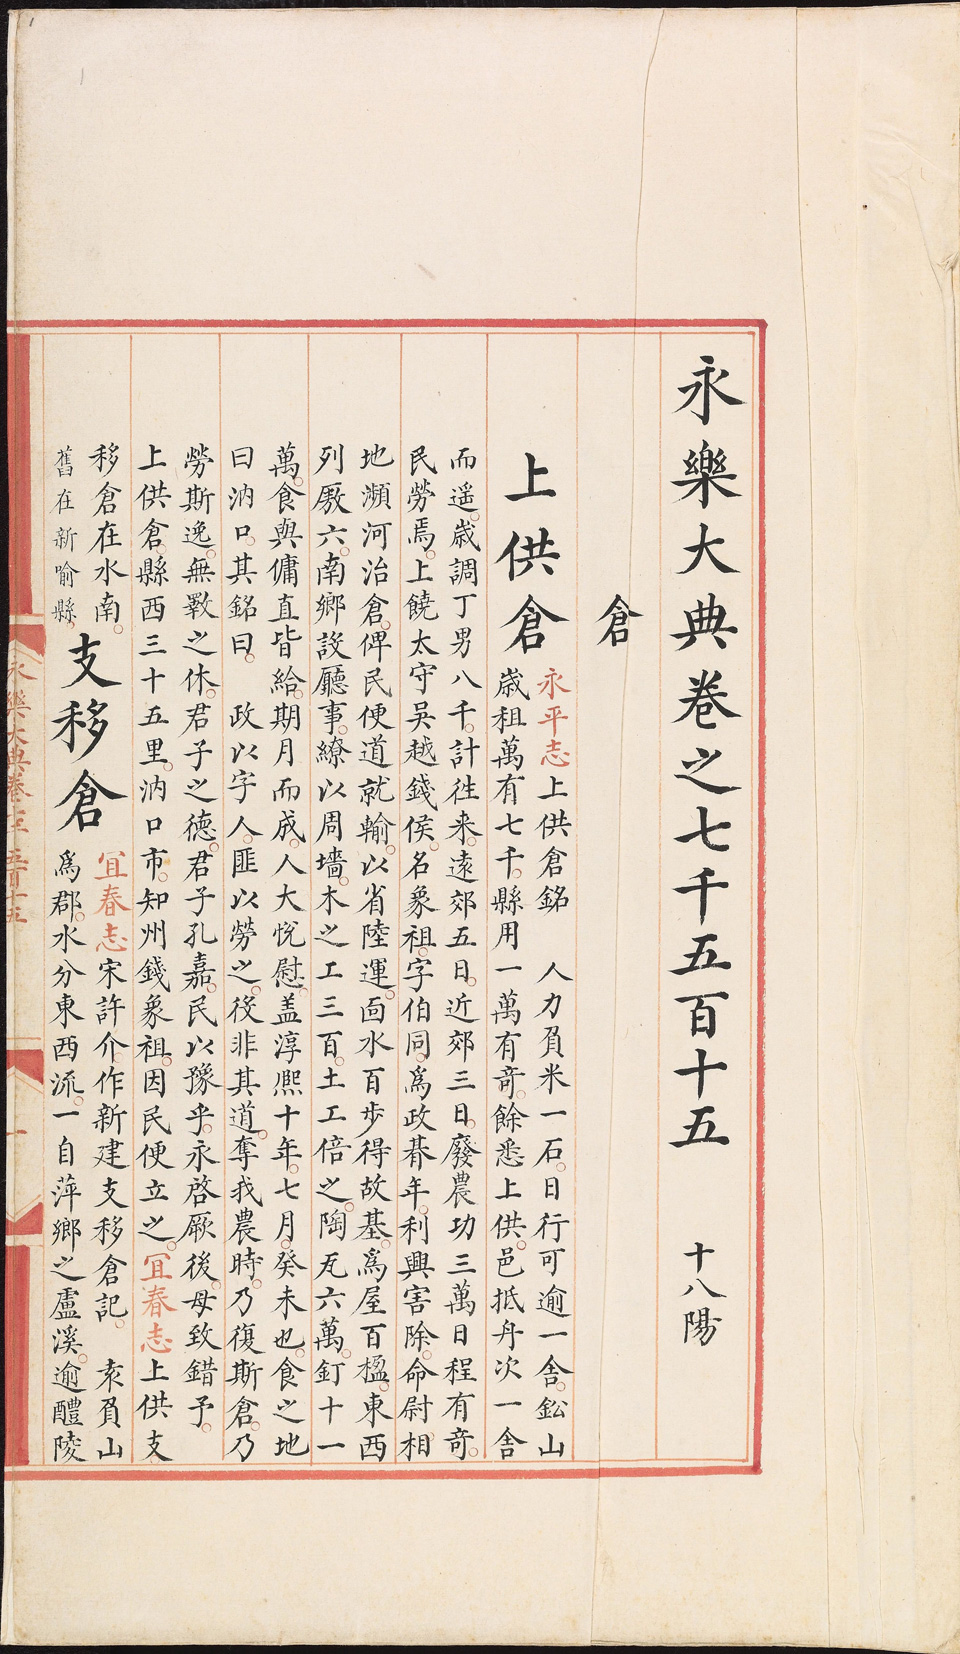 永樂大典卷之七千五百十五　十八陽
倉
上供倉
永平志上供倉銘　人力負米一石日行可逾一舍鈆山
歲租萬有七千縣用一萬有奇餘悉上供邑抵舟次一舍
而遥歲調丁男八千計徃來遠郊五日近郊三日廢農功三萬日程有奇
民勞焉上饒太守吳越錢侯名象祖字伯同為政朞年利興害除命尉相
地瀕河治倉俾民便道就輸以省陸運面水百步得故基為屋百楹東西
列厫六南鄉設廳事繚以周墻木之工三百土工倍之陶瓦六萬釘十一
萬食與傭直皆給期月而成人大悅慰盖淳熙十年七月癸未也食之地
曰汭口其銘曰　政以字人匪以勞之役非其道奪我農時乃復斯倉乃
勞斯逸無斁之休君子之德君子孔嘉民以豫乎永啓厥後毋致錯予
上供倉縣西三十五里汭口市知州錢象祖因民便立之宜春志上供支
移倉在水南
舊在新喻縣
支移倉
宜春志宋許介作新建支移倉記　袁負山
為郡水分東西流一自萍鄉之盧溪逾醴陵
永樂大典卷七千五百十五
一